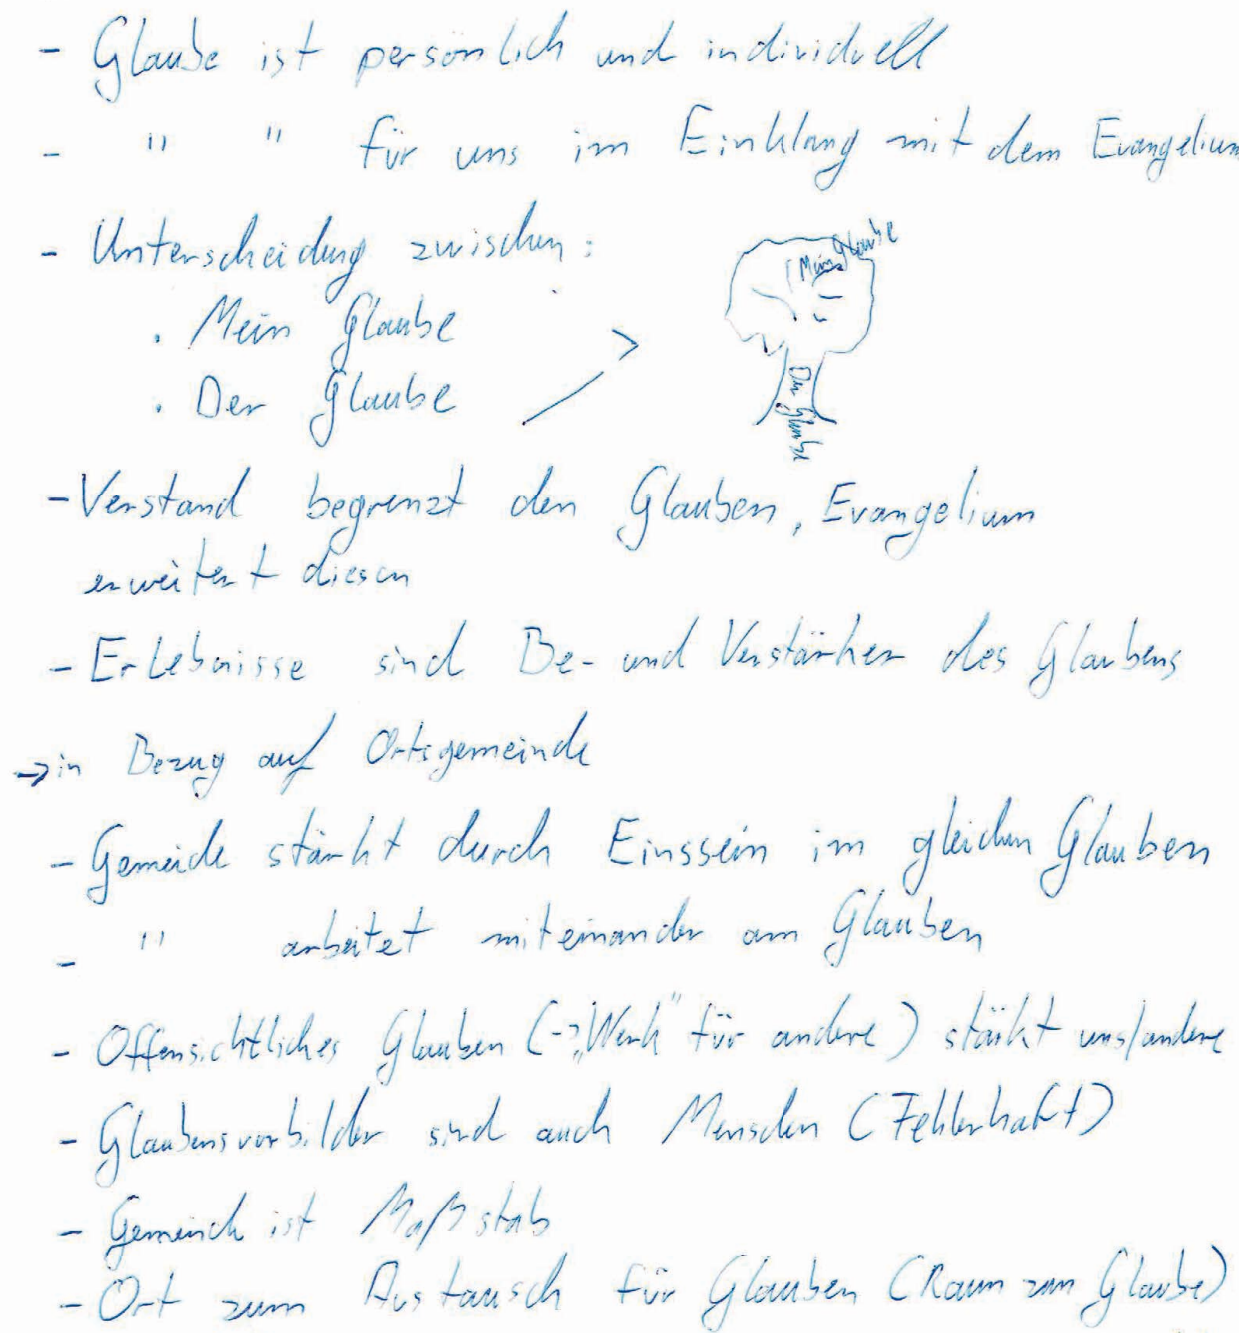 - Glaube ist persönlich und individuell
- " " für uns im Einklang mit dem Evangelium
- Unterscheidung zwischen:
Mein Glaube
. Mein Glaube
. Der Glaube
Der Glaube
- Verstand begrenzt den Glauben, Evangelium
erweitert diesen
- Erlebnisse sind Be- und Verstärker des Glaubens
→ in Bezug auf Ortsgemeinde
- Gemeide stärkt durch Einssein im gleichen Glauben
- " arbeitet miteinander am Glauben
- Offensichtliches Glauben (→ „Werk" für andere) stärkt uns/andere
- Glaubensvorbilder sind auch Menschen (Fehlerhaft)
- Gemeinde ist Maßstab
- Ort zum Austausch für Glauben (Raum zum Glaube)